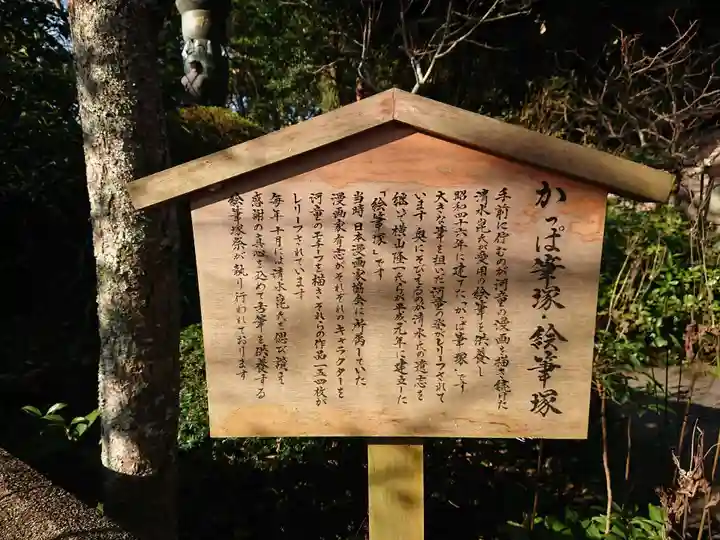 かっぱ筆塚・絵筆塚
手前に佇むのが河童の漫画を描き続けた
清水崑氏が愛用の絵筆を供養し
昭和四十六年に建てた、かっぱ筆塚」です
大きな筆を担いだ河童の姿がレリーフされて
います 奥にそびえるのが清水氏の遺志を
継いで横山隆一氏らが平成元年に建立した
「絵筆塚」です
当時、日本漫画家協会に所属していた
漫画家有志がそれぞれのキャラクターを
河童のモチーフを描き それらの作品一五四枚が
レリーフされています
毎年十月には清水崑氏を偲び 絵筆に
感謝の真心を込めて古筆を供養する
絵筆塚祭が執り行われております